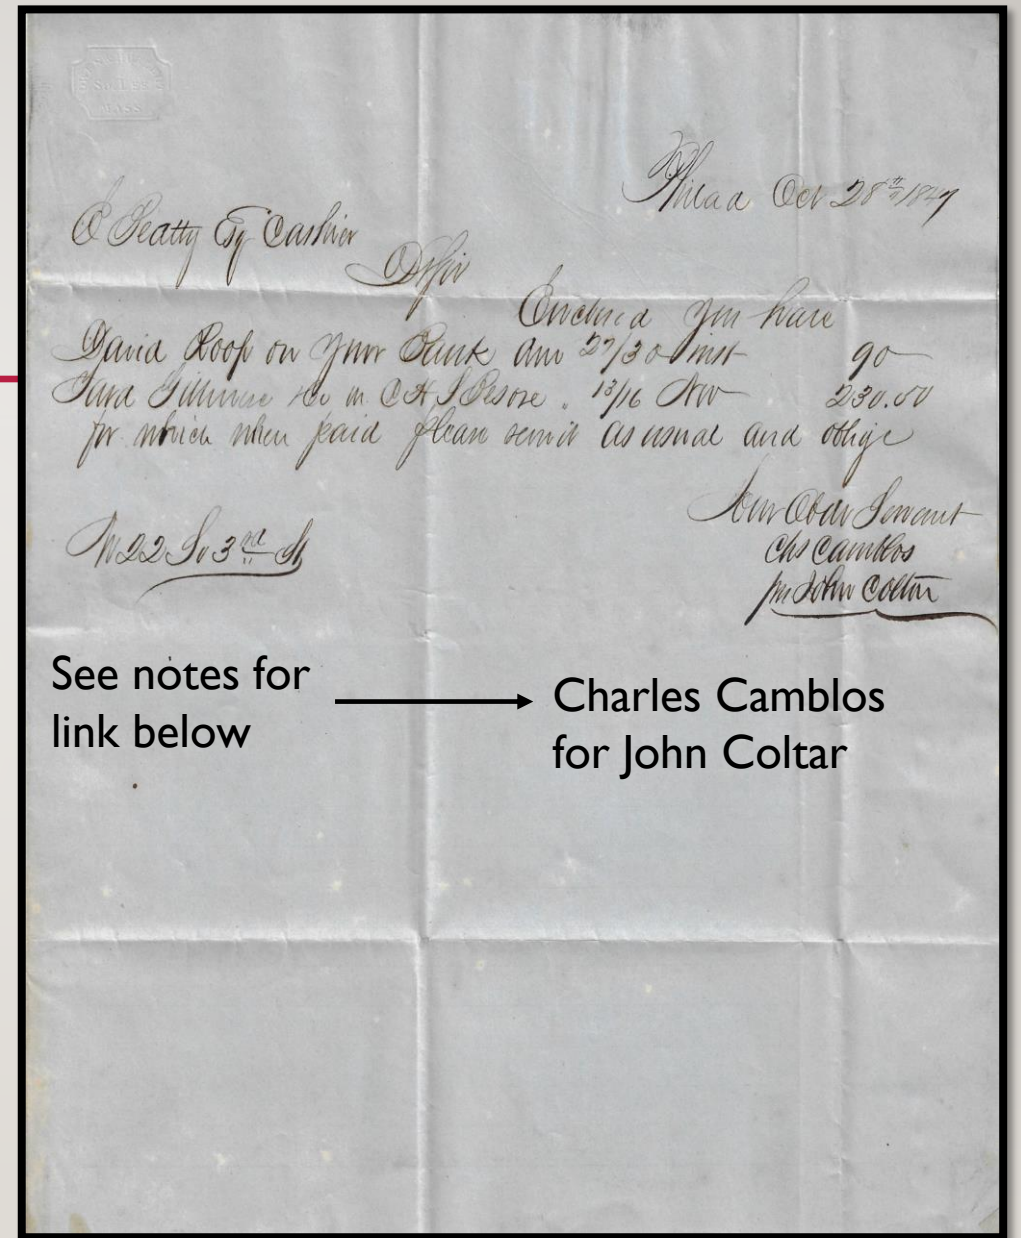 Philad Oct 28th 1847
Beatty Esq Cashier
D Sir
Enclosed you have
David Roop on your Bank due 27/30 inst 90
13/16 Nov 230.00
for which when paid please remit as usual and oblige
Your Obdt Servant
Chs Camblos
per John Colton
No 22 So 3rd St
See notes for
link below
Charles Camblos
for John Coltar